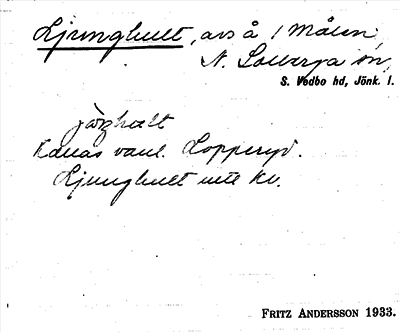 Ljunghult, avs å 1 Målen,
N. Solberga sn,
S. Vedbo hd, Jönk. l.
Kallas vanl. Lopperyd.
Ljunghult utt kv.
FRITZ ANDERSSON 1933.